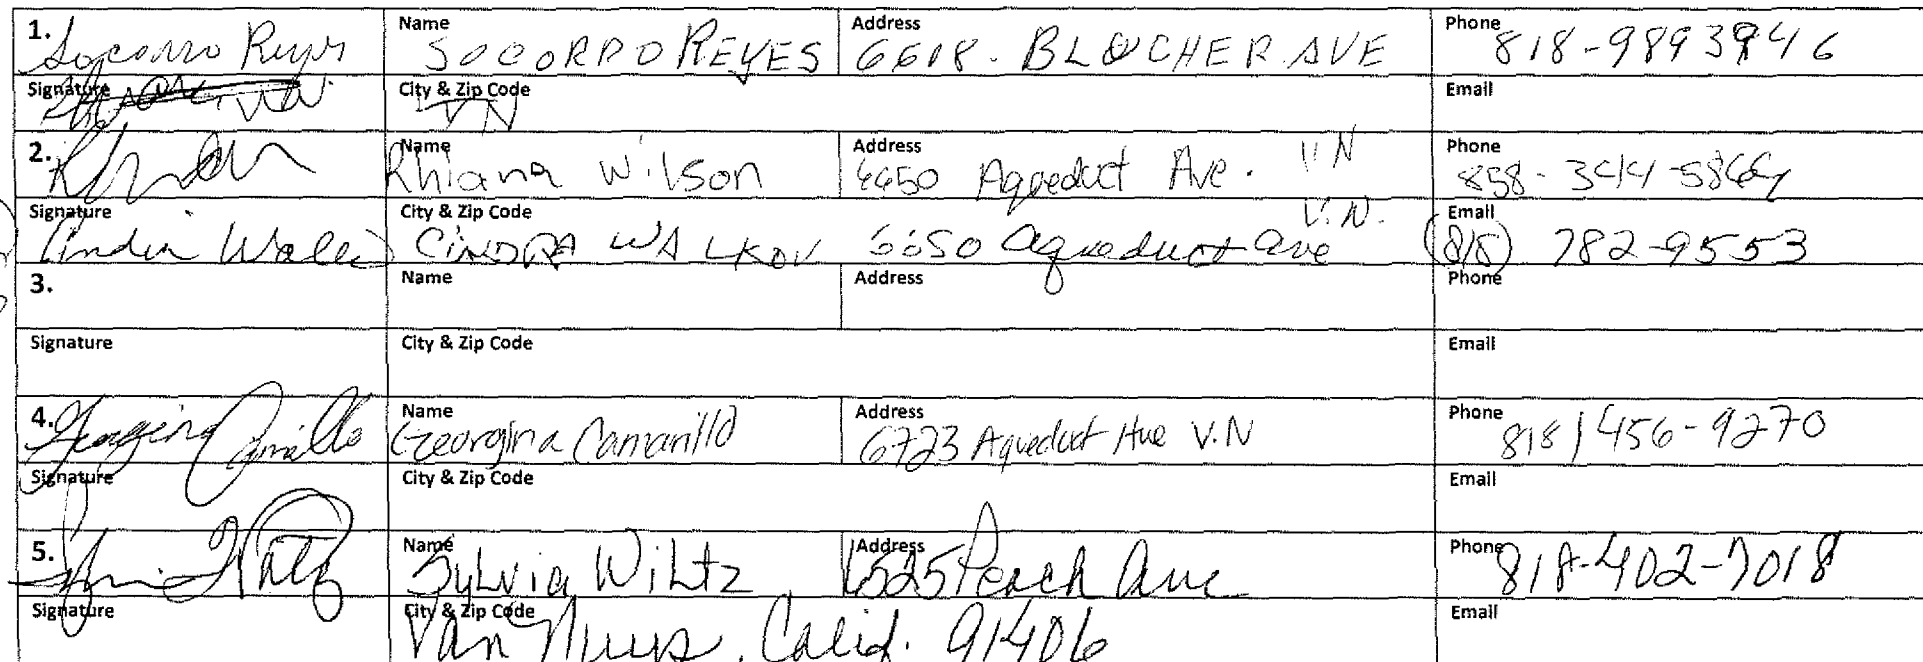 1. Socorro Reyes Name SOCORRO REYES Address 6618. BLUCHER AVE Phone 818-9893946
Signature City & Zip Code VN Email
2. Name Rhiana Wilson Address 6650 Aqueduct Ave. VN Phone 858-344-5864
Signature City & Zip Code V.N. Email
CINDRA WALKOV 6650 Aqueduct Ave (818) 782-9553
3. Name Address Phone
Signature City & Zip Code Email
4. Georgina Camarillo Name Georgina Camarillo Address 6723 Aqueduct Ave V.N Phone 818) 456-9270
Signature City & Zip Code Email
5. Name Sylvia Wiltz Address 6525 Peach Ave Phone 818-402-7018
Signature City & Zip Code Van Nuys, Calif. 91406 Email